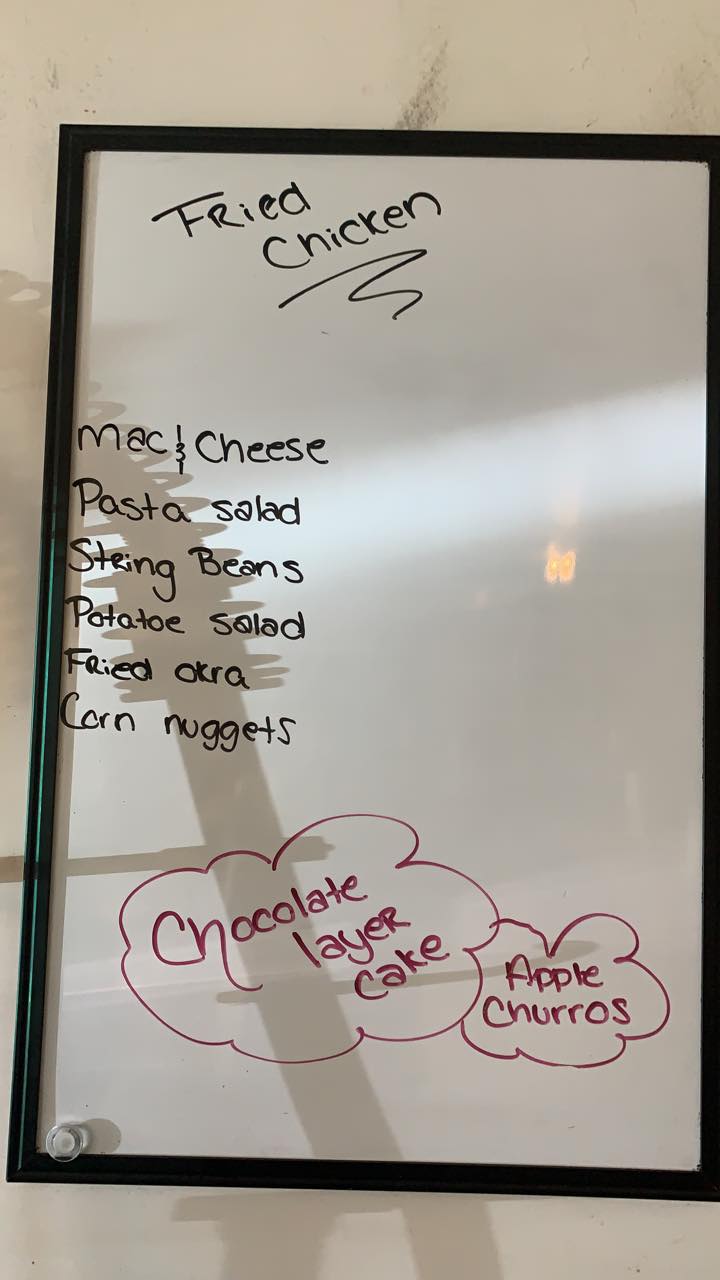 Fried
Chicken
Mac & Cheese
Pasta salad
String Beans
Potatoe salad
Fried okra
Corn nuggets
Chocolate
layer
cake
Apple
Churros